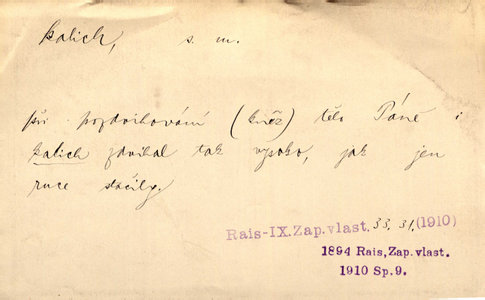 kalich, s. m.
při pozdvihování (kněz) tělo Páně i
kalich zdvihal tak vysoko, jak jen
ruce stačily.
Rais-IX.Zap.vlast. 33, 31, (1910)
1894 Rais, Zap. vlast.
1910 Sp. 9.